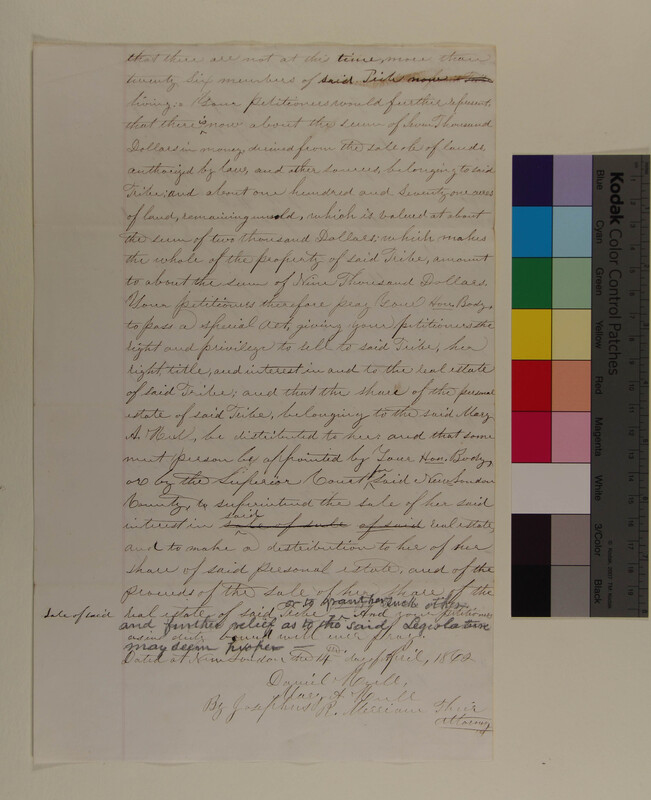 that there are not at this time, more than
twenty six members of said Tribe
living. Your petitioners would further represent
that there is now about the sum of Seven Thousand
Dollars in money, derived from the sale of lands
authorized by law, and other sources, belonging to said
Tribe; and about one hundred and seventy one acres
of land, remaining unsold, which is valued at about
the sum of two thousand Dollars; which makes
the whole of the property of said Tribe, amount
to about the sum of Nine Thousand Dollars.
Your petitioners therefore pray Your Hon. Body,
to pass a special act, giving your petitioners the
right and privilege to sell to said Tribe, her
right title, and interest in and to the real estate
of said Tribe; and that the share of the personal
estate of said Tribe, belonging to the said Mary
A. , be distributed to her and that some
meet person be appointed by Your Hon. Body,
or by the Superior Court for said New London
County, to superintend the sale of her said
interest in said sale of sale of said real estate,
and to make a distribution to her of her
share of said personal estate, and of the
proceeds of the sale of her share of the
Sale of said
real estate of said Tribe or to grant her such other
and further relief as to the said Legislature
may seem proper — And your petitioners
as in duty bound will ever pray.
Dated at New London, the 14th day April, 1862
Daniel
Mary A.
By Josephus R. William Their
Attorney
Kodak Color Control Patches
Blue
Cyan
Green
Yellow
Red
Magenta
White
3/Color
Black